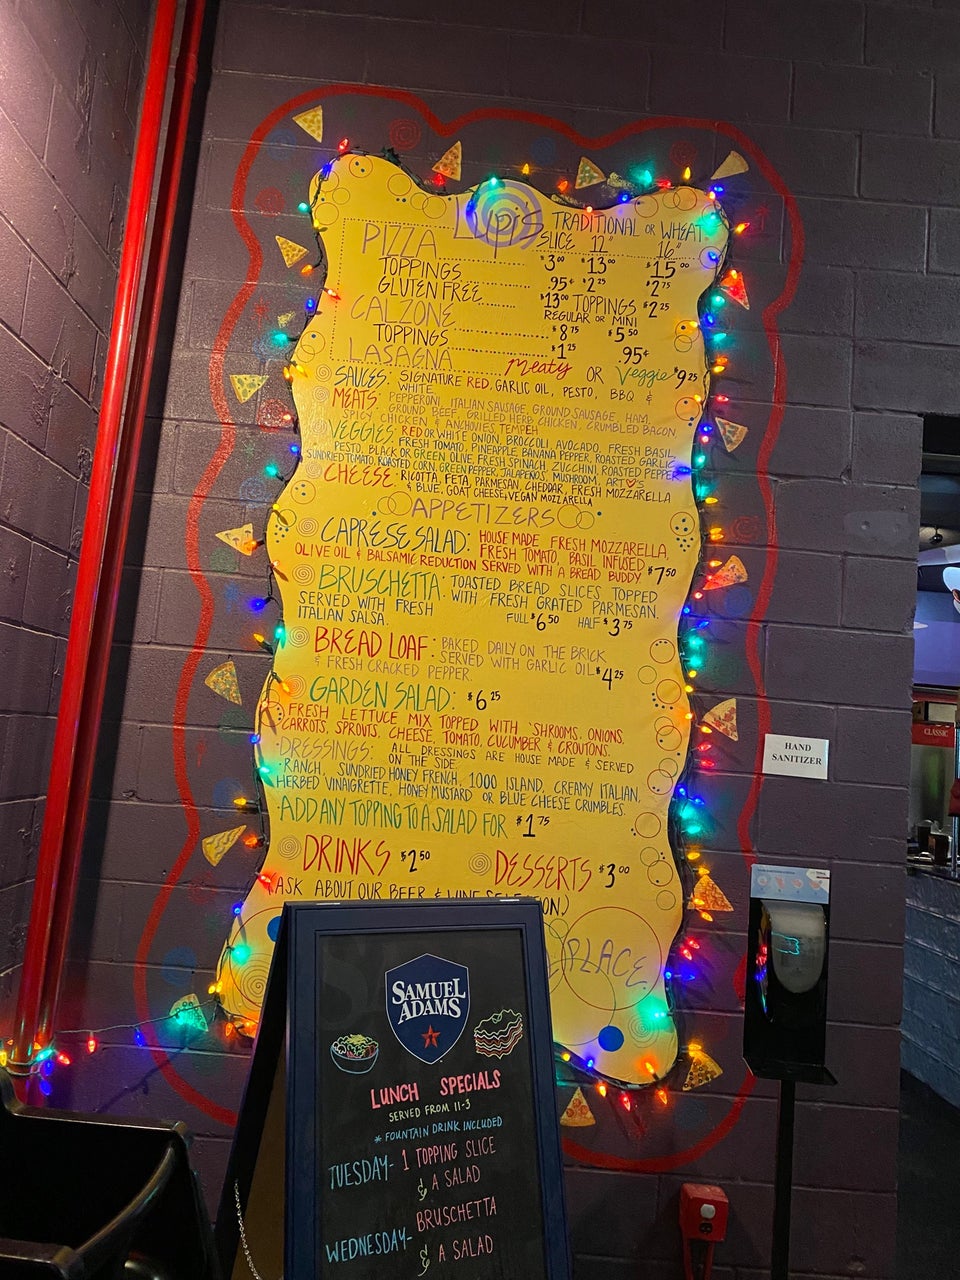 Lupi's
TRADITIONAL OR WHEAT
PIZZA SLICE 12" 16"
$3.00 $13.00 $15.00
TOPPINGS .95¢ $2.25 $2.75
GLUTEN FREE $13.00 TOPPINGS $2.25
CALZONE REGULAR OR MINI
$8.75 $5.50
TOPPINGS $1.25 .95¢
LASAGNA Meaty OR Veggie $9.25
SAUCES: SIGNATURE RED, GARLIC OIL, PESTO, BBQ &
WHITE.
MEATS: PEPPERONI, ITALIAN SAUSAGE, GROUND SAUSAGE, HAM,
GROUND BEEF, GRILLED HERB CHICKEN, CRUMBLED BACON,
SPICY CHICKEN & ANCHOVIES TEMPEH
VEGGIES: RED OR WHITE ONION, BROCCOLI, AVOCADO, FRESH BASIL,
FRESH TOMATO, PINEAPPLE, BANANA PEPPER, ROASTED GARLIC
PESTO, BLACK OR GREEN OLIVE, FRESH SPINACH, ZUCCHINI, ROASTED PEPPER
SUNDRIED TOMATO, ROASTED CORN, GREEN PEPPER, JALAPEÑOS, MUSHROOM, ART♥'S
CHEESE: RICOTTA, FETA, PARMESAN, CHEDDAR, FRESH MOZZARELLA
& BLUE, GOAT CHEESE, VEGAN MOZZARELLA
APPETIZERS
CAPRESE SALAD: HOUSE MADE FRESH MOZZARELLA,
FRESH TOMATO, BASIL INFUSED
OLIVE OIL & BALSAMIC REDUCTION SERVED WITH A BREAD BUDDY $7.50
BRUSCHETTA: TOASTED BREAD SLICES TOPPED
WITH FRESH GRATED PARMESAN.
SERVED WITH FRESH
ITALIAN SALSA. FULL $6.50 HALF $3.75
BREAD LOAF: BAKED DAILY ON THE BRICK
SERVED WITH GARLIC OIL
& FRESH CRACKED PEPPER. $4.25
GARDEN SALAD: $6.25
FRESH LETTUCE MIX TOPPED WITH 'SHROOMS, ONIONS,
CARROTS, SPROUTS, CHEESE, TOMATO, CUCUMBER & CROUTONS.
DRESSINGS: ALL DRESSINGS ARE HOUSE MADE & SERVED
ON THE SIDE.
RANCH, SUNDRIED HONEY FRENCH, 1000 ISLAND, CREAMY ITALIAN,
HERBED VINAIGRETTE, HONEY MUSTARD OR BLUE CHEESE CRUMBLES.
ADD ANY TOPPING TO A SALAD FOR $1.75
DRINKS $2.50 DESSERTS $3.00
(ASK ABOUT OUR BEER & WINE SELECTION.)
PLACE
HAND
SANITIZER
CLASSIC
SAMUEL
ADAMS
LUNCH SPECIALS
SERVED FROM 11-3
* FOUNTAIN DRINK INCLUDED
TUESDAY- 1 TOPPING SLICE
& A SALAD
WEDNESDAY- BRUSCHETTA
& A SALAD